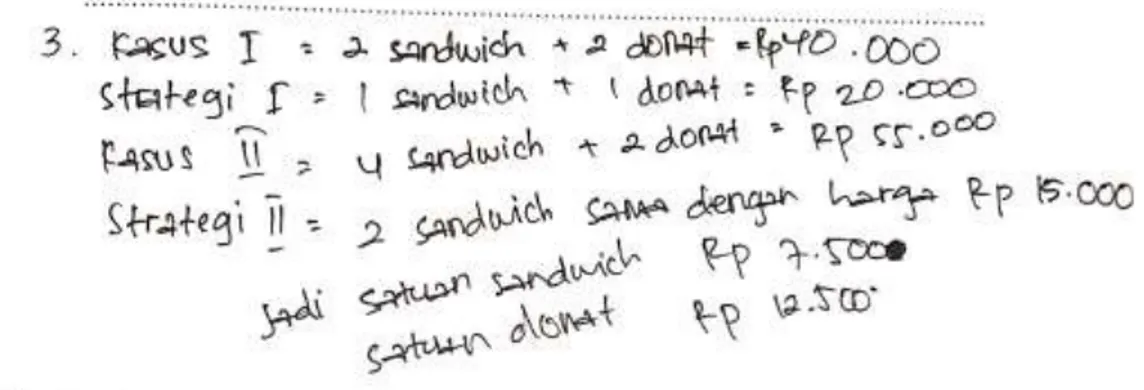 3. Kasus I = 2 sandwich + 2 donat = Rp40.000
Strategi I = 1 sandwich + 1 donat = Rp 20.000
Kasus II = 4 sandwich + 2 donat = Rp 55.000
Strategi II = 2 sandwich sama dengan harga Rp 15.000
Jadi satuan sandwich Rp 7.500
satuan donat Rp 12.500